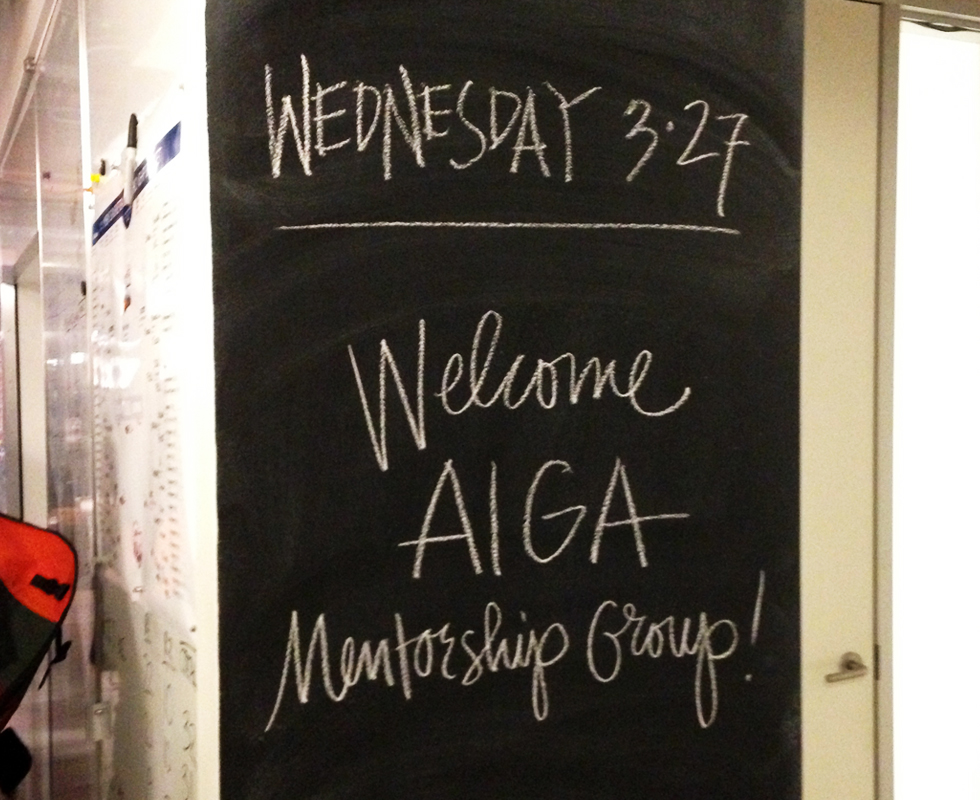 WEDNESDAY 3.27
Welcome
AIGA
Mentorship Group!